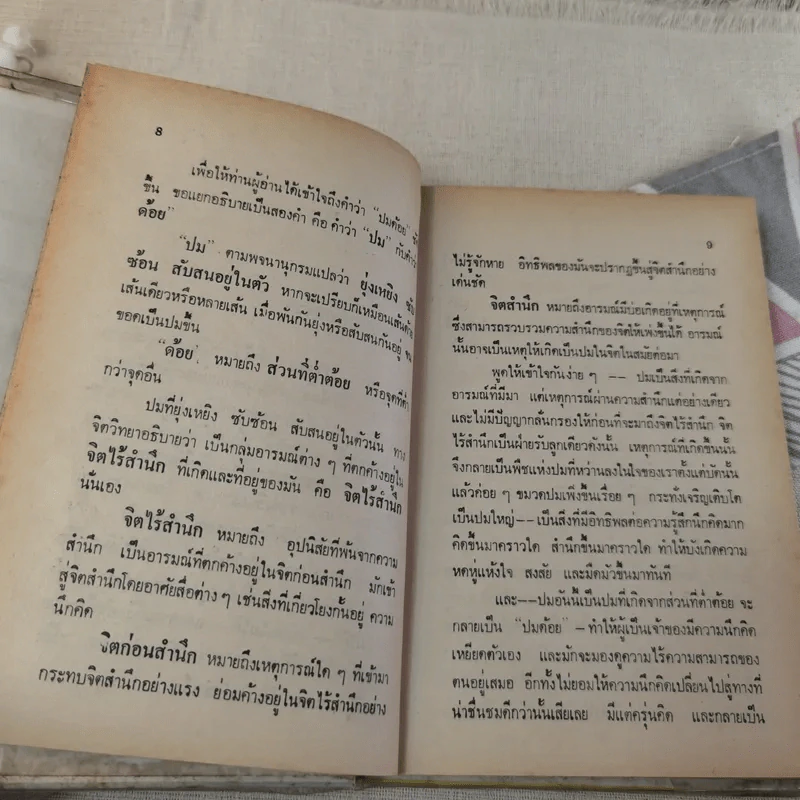 8
เพื่อให้ท่านผู้อ่านได้เข้าใจถึงคำว่า "ปมด้อย"
ขึ้น ขอแยกอธิบายเป็นสองคำ คือ คำว่า "ปม" กับคำว่า
ด้อย"
"ปม" ตามพจนานุกรมแปลว่า ยุ่งเหยิง ซับ
ซ้อน สับสนอยู่ในตัว หากจะเปรียบก็เหมือนเส้นด้าย
เส้นเดียวหรือหลายเส้น เมื่อพันกันยุ่งหรือสับสนกันอยู่ จน
ขอดเป็นปมขึ้น
"ด้อย" หมายถึง ส่วนที่ต่ำต้อย หรือจุดที่ต่ำ
กว่าจุดอื่น
ปมที่ยุ่งเหยิง ซับซ้อน สับสนอยู่ในตัวนั้น ทาง
จิตวิทยาอธิบายว่า เป็นกลุ่มอารมณ์ต่าง ๆ ที่ตกค้างอยู่ใน
จิตไร้สำนึก ที่เกิดและที่อยู่ของมัน คือ จิตไร้สำนึก
นั่นเอง
จิตไร้สำนึก หมายถึง อุปนิสัยที่พ้นจากความ
สำนึก เป็นอารมณ์ที่ตกค้างอยู่ในจิตก่อนสำนึก มักเข้า
สู่จิตสำนึกโดยอาศัยสื่อต่าง ๆ เช่นสิ่งที่เกี่ยวโยงกันอยู่ ความ
นึกคิด
จิตก่อนสำนึก หมายถึงเหตุการณ์ใด ๆ ที่เข้ามา
กระทบจิตสำนึกอย่างแรง ย่อมค้างอยู่ในจิตไร้สำนึกอย่าง
9
ไม่รู้จักหาย อิทธิพลของมันจะปรากฏขึ้นสู่จิตสำนึกอย่าง
เด่นชัด
จิตสำนึก หมายถึงอารมณ์มีบ่อเกิดอยู่ที่เหตุการณ์
ซึ่งสามารถรวบรวมความสำนึกของจิตให้เพ่งขึ้นได้ อารมณ์
นั้นอาจเป็นเหตุให้เกิดเป็นปมในจิตในสมัยต่อมา
พูดให้เข้าใจกันง่าย ๆ -- ปมเป็นสิ่งที่เกิดจาก
อารมณ์ที่มีมา แต่เหตุการณ์ผ่านความสำนึกแต่อย่างเดียว
และไม่มีปัญญากลั่นกรองให้ก่อนที่จะมาถึงจิตไร้สำนึก จิต
ไร้สำนึกเป็นฝ่ายรับลูกเดียวดังนั้น เหตุการณ์ที่เกิดขึ้นนั้น
จึงกลายเป็นพืชแห่งปมที่หว่านลงในใจของเราตั้งแต่บัดนั้น
แล้วค่อย ๆ ขมวดปมเพิ่งขึ้นเรื่อย ๆ กระทั่งเจริญเติบโต
เป็นปมใหญ่--เป็นสิ่งที่มีอิทธิพลต่อความรู้สึกนึกคิดมาก
คิดขึ้นมาคราวใด สำนึกขึ้นมาคราวใด ทำให้บังเกิดความ
หดหู่แห้งใจ สงสัย และมืดมัวขึ้นมาทันที
และ--ปมอันนี้เป็นปมที่เกิดจากส่วนที่ต่ำต้อย จะ
กลายเป็น "ปมด้อย" - ทำให้ผู้เป็นเจ้าของมีความนึกคิด
เหยียดตัวเอง และมักจะมองดูความไร้ความสามารถของ
ตนอยู่เสมอ อีกทั้งไม่ยอมให้ความนึกคิดเปลี่ยนไปสู่ทางที่
น่าชื่นชมดีกว่านั้นเสียเลย มีแต่ครุ่นคิด และกลายเป็น